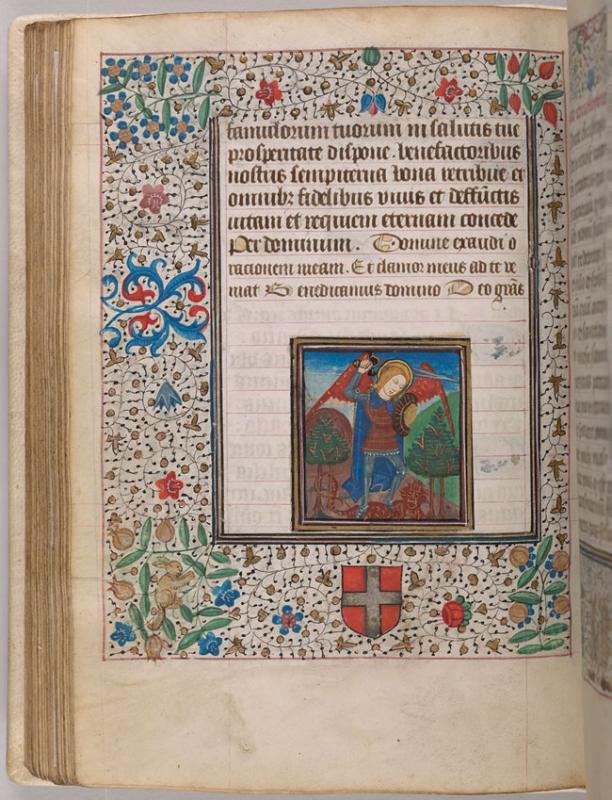 famulorum tuorum in salutis tue
prosperitate dispone. benefactoribus
nostris sempiterna bona retribue et
omnibz fidelibus viuis et deffūctis
uitam et requiem eternam concede
Per dominum. Domine exaudi o
rationem meam. Et clamor meus ad te ve
niat Benedicamus domino Deo grās